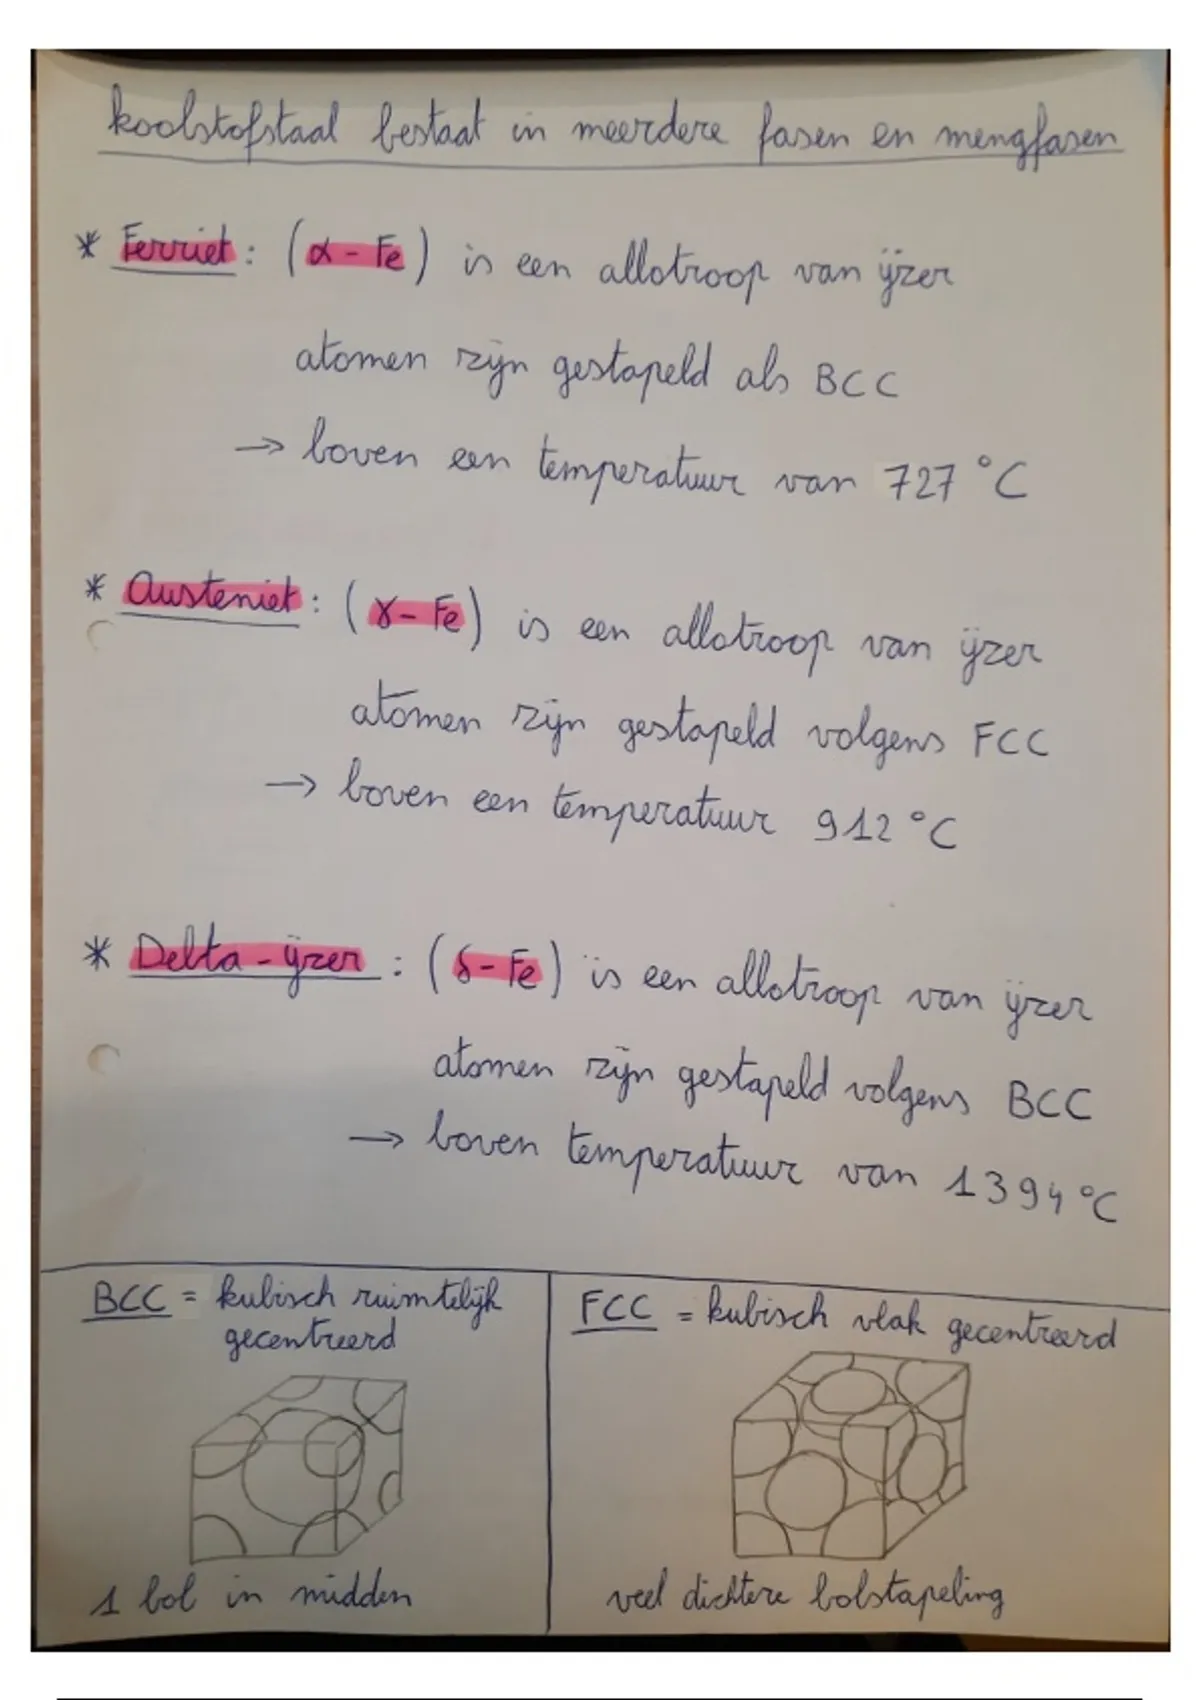 koolstofstaal bestaat in meerdere fasen en mengfasen
* Ferriet: (α-Fe) is een allotroop van ijzer
atomen zijn gestapeld als BCC
→ boven een temperatuur van 727 °C
* Austeniet: (γ-Fe) is een allotroop van ijzer
atomen zijn gestapeld volgens FCC
→ boven een temperatuur 912 °C
* Delta-ijzer: (δ-Fe) is een allotroop van ijzer
atomen zijn gestapeld volgens BCC
→ boven temperatuur van 1394 °C
BCC = kubisch ruimtelijk
gecentreerd
1 bol in midden
FCC = kubisch vlak gecentreerd
veel dichtere bolstapeling